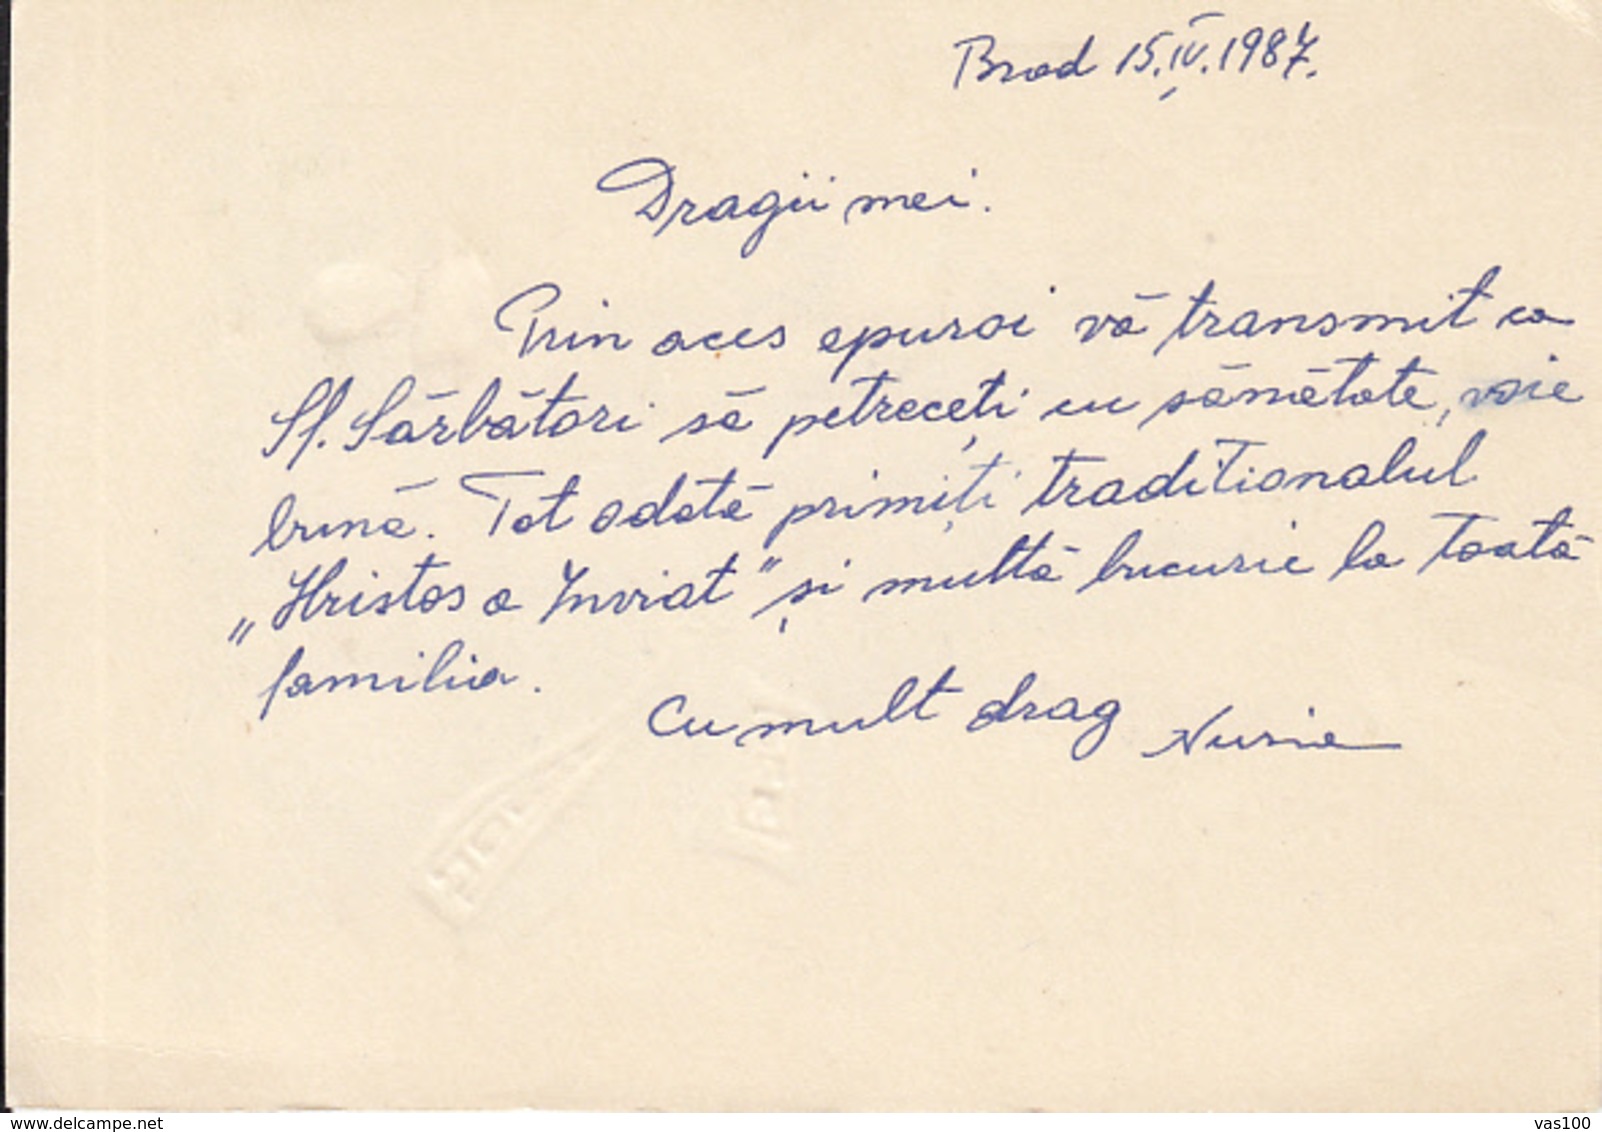 Brad 15.IV.1987.
Dragii mei.
Prin aces epuraș vă transmit ca
Sf. Sărbători să petreceți cu sănătate, voie
bună. Tot odată primiți tradiționalul
„Hristos a Inviat" și multă bucurie la toată
familia.
Cu mult drag
delcampe.net
vas100